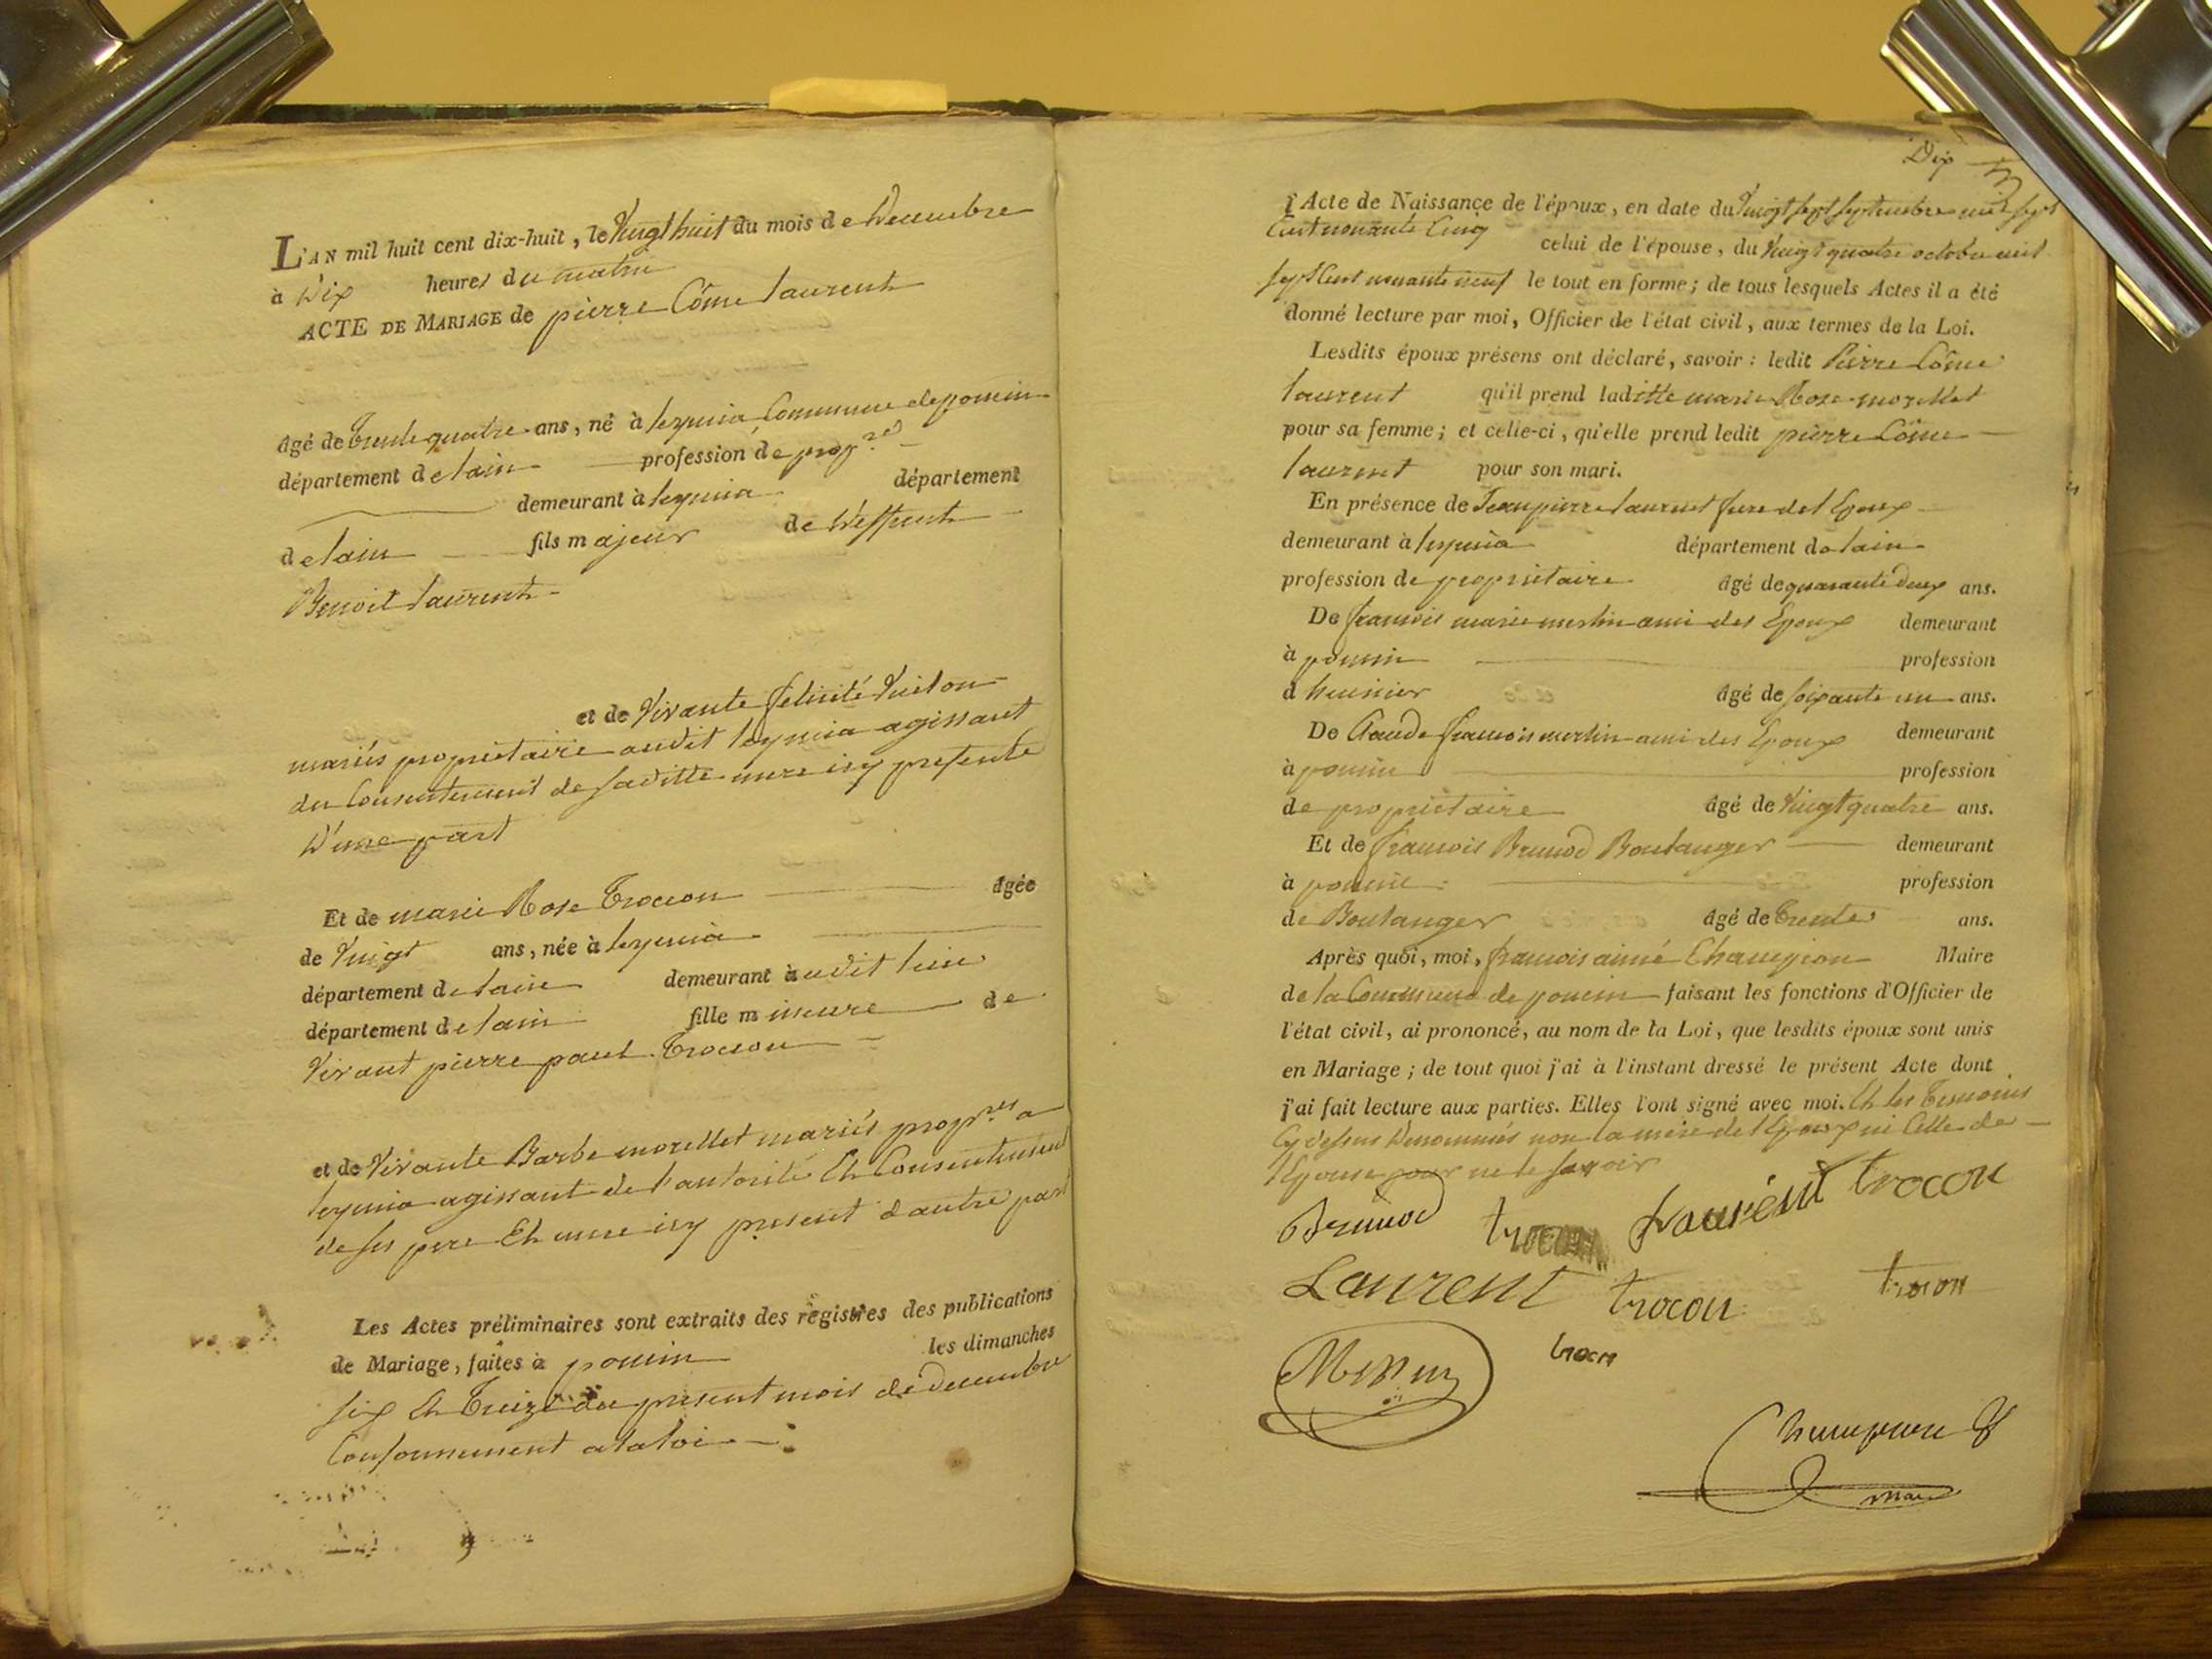 L'AN mil huit cent dix-huit, le Vingt huit du mois de Decembre
à Dix heures du matin
ACTE DE MARIAGE de pierre Côme laurent
âgé de trente quatre ans, né à leymia Commune de poncin
département de lain profession de prop.re
demeurant à leymia département
de lain fils majeur de Deffunt
Benoit laurent
et de Vivante felicité
mariés propriétaire audit leymia agissant
du Consentement de saditte mere icy presente
D'une part
Et de marie Rose Trocon âgée
de Vingt ans, née à leymia
département de lain demeurant audit lieu
département de lain fille mineure de
Vivant pierre paul Trocon
et de Vivante Barbe morellet mariés prop.res a
leymia agissant de l'autorité Et Consentement
de ses pere Et mere icy present d'autre part
Les Actes préliminaires sont extraits des registres des publications
de Mariage, faites à poncin les dimanches
six Et Treize du present mois de Decembre
Conformement a la loi
Dix
l'Acte de Naissance de l'époux, en date du Vingt sept septembre mil sept
Cent nonante Cinq celui de l'épouse, du Vingt quatre octobre mil
sept Cent nonante neuf le tout en forme; de tous lesquels Actes il a été
donné lecture par moi, Officier de l'état civil, aux termes de la Loi.
Lesdits époux présens ont déclaré, savoir: ledit Pierre Côme
laurent qu'il prend laditte marie Rose morellet
pour sa femme; et celle-ci, qu'elle prend ledit pierre Côme
laurent pour son mari.
En présence de Jean pierre laurent frere de l'Epoux
demeurant à leymia département de lain
profession de propriétaire âgé de quarante deux ans.
De francois marie merlin ami des Epoux demeurant
à poncin profession
d'huissier âgé de soixante un ans.
De Claude francois merlin ami des Epoux demeurant
à poncin profession
de propriétaire âgé de Vingt quatre ans.
Et de francois Brunod Boulanger demeurant
à poncin profession
de Boulanger âgé de Trente ans.
Après quoi, moi, francois aimé Champion Maire
de la Commune de poncin faisant les fonctions d'Officier de
l'état civil, ai prononcé, au nom de la Loi, que lesdits époux sont unis
en Mariage; de tout quoi j'ai à l'instant dressé le présent Acte dont
j'ai fait lecture aux parties. Elles l'ont signé avec moi. Et les Temoins
Cy dessus Denommés non la mere de l'Epoux ni Celle de
l'Epouse pour ne le savoir
Brunod trocon Laurent trocon
Laurent trocon trocon
trocon
Champion
maire